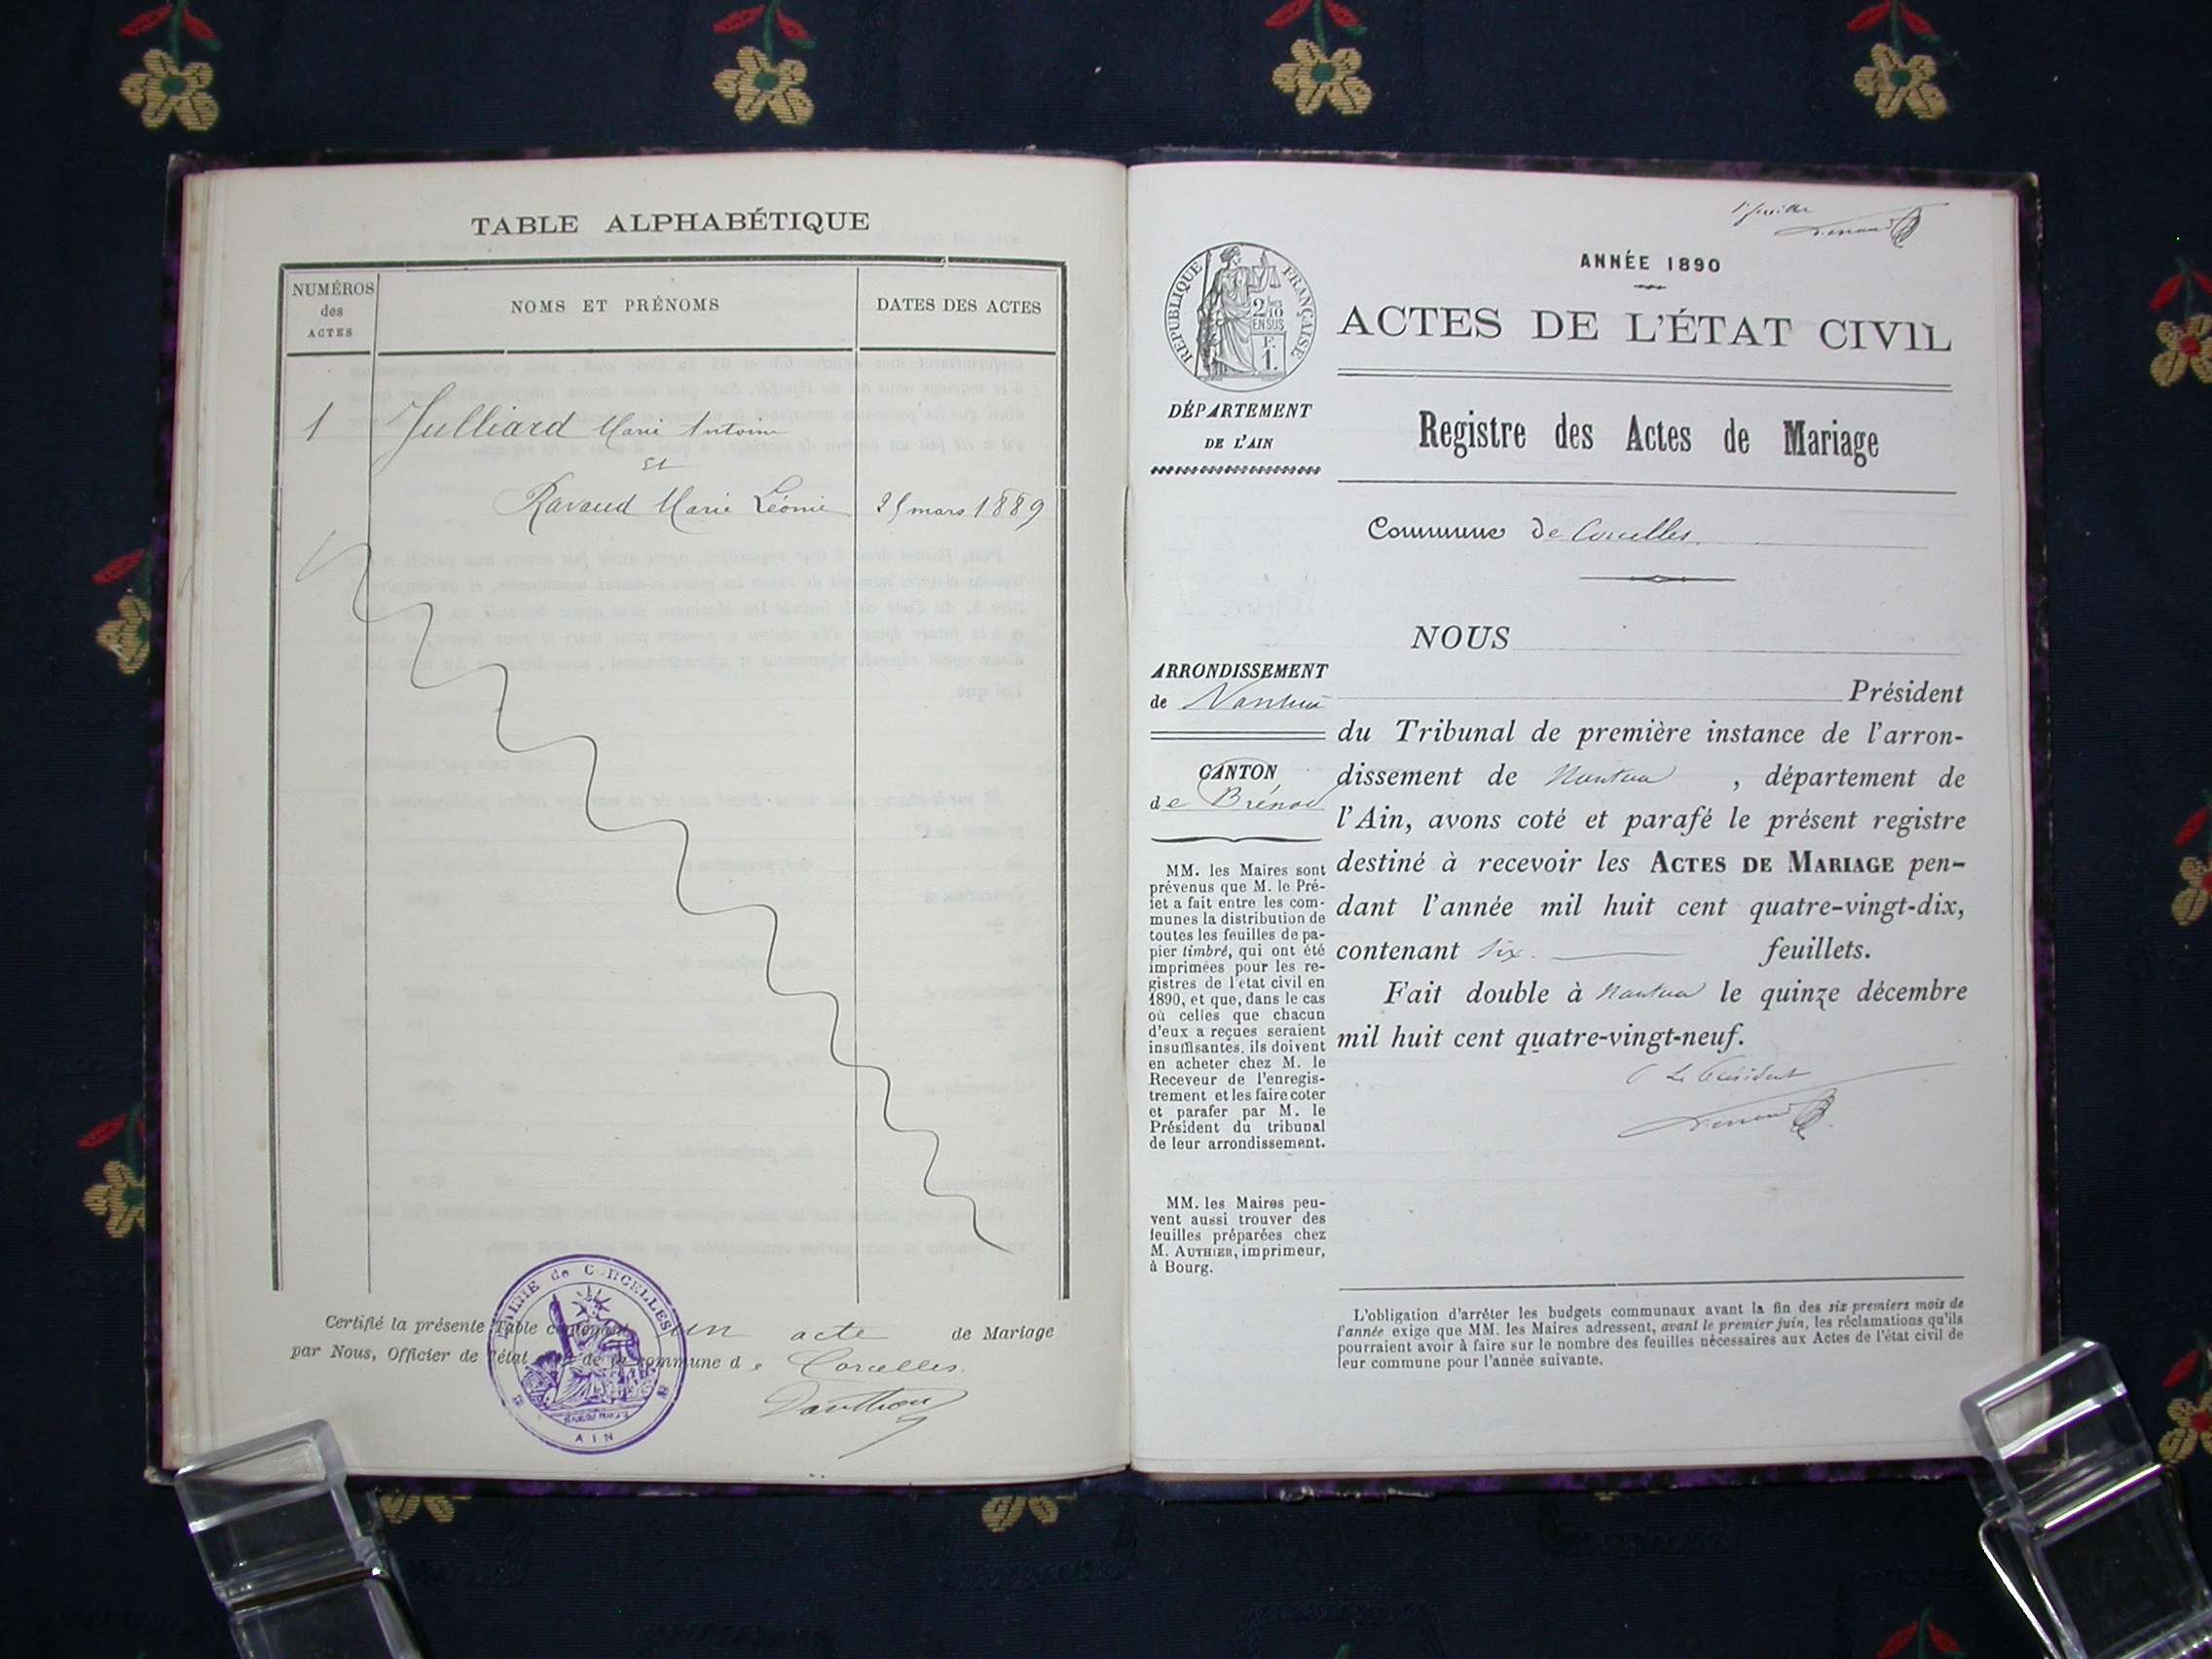 TABLE ALPHABÉTIQUE
NUMÉROS
des
ACTES
NOMS ET PRÉNOMS
DATES DES ACTES
1 Julliard Marie Antoine
et
Ravaud Marie Léonie 25 mars 1889
Certifié la présente Table contenant un acte de Mariage
par Nous, Officier de l'état de la commune de Corcelles.
MAIRIE de CORCELLES
AIN
ANNÉE 1890
RÉPUBLIQUE FRANÇAISE
2/10
EN SUS
F.
1.
ACTES DE L'ÉTAT CIVIL
DÉPARTEMENT
DE L'AIN
Registre des Actes de Mariage
Commune de Corcelles.
ARRONDISSEMENT
de Nantua
CANTON
de Brénod
MM. les Maires sont
prévenus que M. le Pré-
fet a fait entre les com-
munes la distribution de
toutes les feuilles de pa-
pier timbré, qui ont été
imprimées pour les re-
gistres de l'état civil en
1890, et que, dans le cas
où celles que chacun
d'eux a reçues seraient
insuffisantes, ils doivent
en acheter chez M. le
Receveur de l'enregis-
trement et les faire coter
et parafer par M. le
Président du tribunal
de leur arrondissement.
MM. les Maires peu-
vent aussi trouver des
feuilles préparées chez
M. AUTHIER, imprimeur,
à Bourg.
NOUS
Président
du Tribunal de première instance de l'arron-
dissement de Nantua, département de
l'Ain, avons coté et parafé le présent registre
destiné à recevoir les ACTES DE MARIAGE pen-
dant l'année mil huit cent quatre-vingt-dix,
contenant six feuillets.
Fait double à Nantua le quinze décembre
mil huit cent quatre-vingt-neuf.
Le Président
L'obligation d'arrêter les budgets communaux avant la fin des six premiers mois de
l'année exige que MM. les Maires adressent, avant le premier juin, les réclamations qu'ils
pourraient avoir à faire sur le nombre des feuilles nécessaires aux Actes de l'état civil de
leur commune pour l'année suivante.